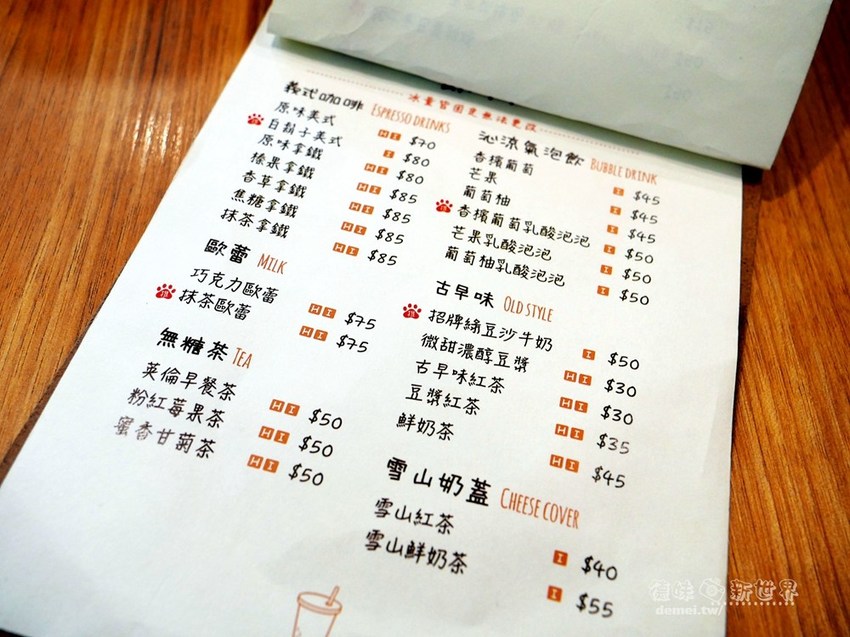 冰量皆固定無法更改
義式咖啡 ESPRESSO DRINKS
原味美式 HI $70
白鬍子美式 I $80
原味拿鐵 HI $80
榛果拿鐵 HI $85
香草拿鐵 HI $85
焦糖拿鐵 HI $85
抹茶拿鐵 HI $85
歐蕾 MILK
巧克力歐蕾 HI $75
抹茶歐蕾 HI $75
無糖茶 TEA
英倫早餐茶 HI $50
粉紅莓果茶 HI $50
蜜香甘菊茶 HI $50
沁涼氣泡飲 BUBBLE DRINK
香檳葡萄 I $45
芒果 I $45
葡萄柚 I $45
香檳葡萄乳酸泡泡 I $50
芒果乳酸泡泡 I $50
葡萄柚乳酸泡泡 I $50
古早味 OLD STYLE
招牌綠豆沙牛奶 I $50
微甜濃醇豆漿 HI $30
古早味紅茶 HI $30
豆漿紅茶 HI $35
鮮奶茶 HI $45
雪山奶蓋 CHEESE COVER
雪山紅茶 I $40
雪山鮮奶茶 I $55
新世界
demei.tw/